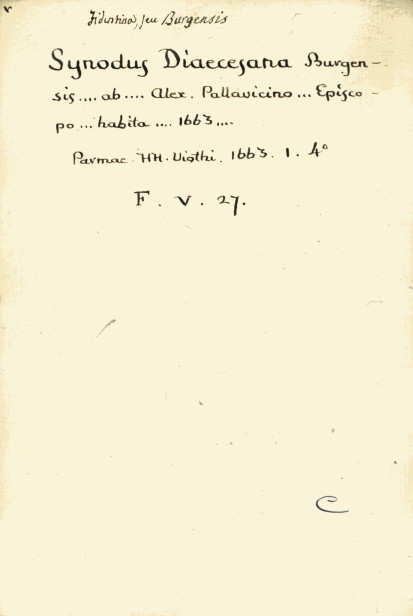 Fidentina, seu Burgensis
Synodus Diaecesana Burgen-
sis.... ab.... Alex. Pallavicino... Episco-
po... habita.... 1663....
Parmae. HH. Viothi. 1663. 1. 4°
F. V. 27.
C